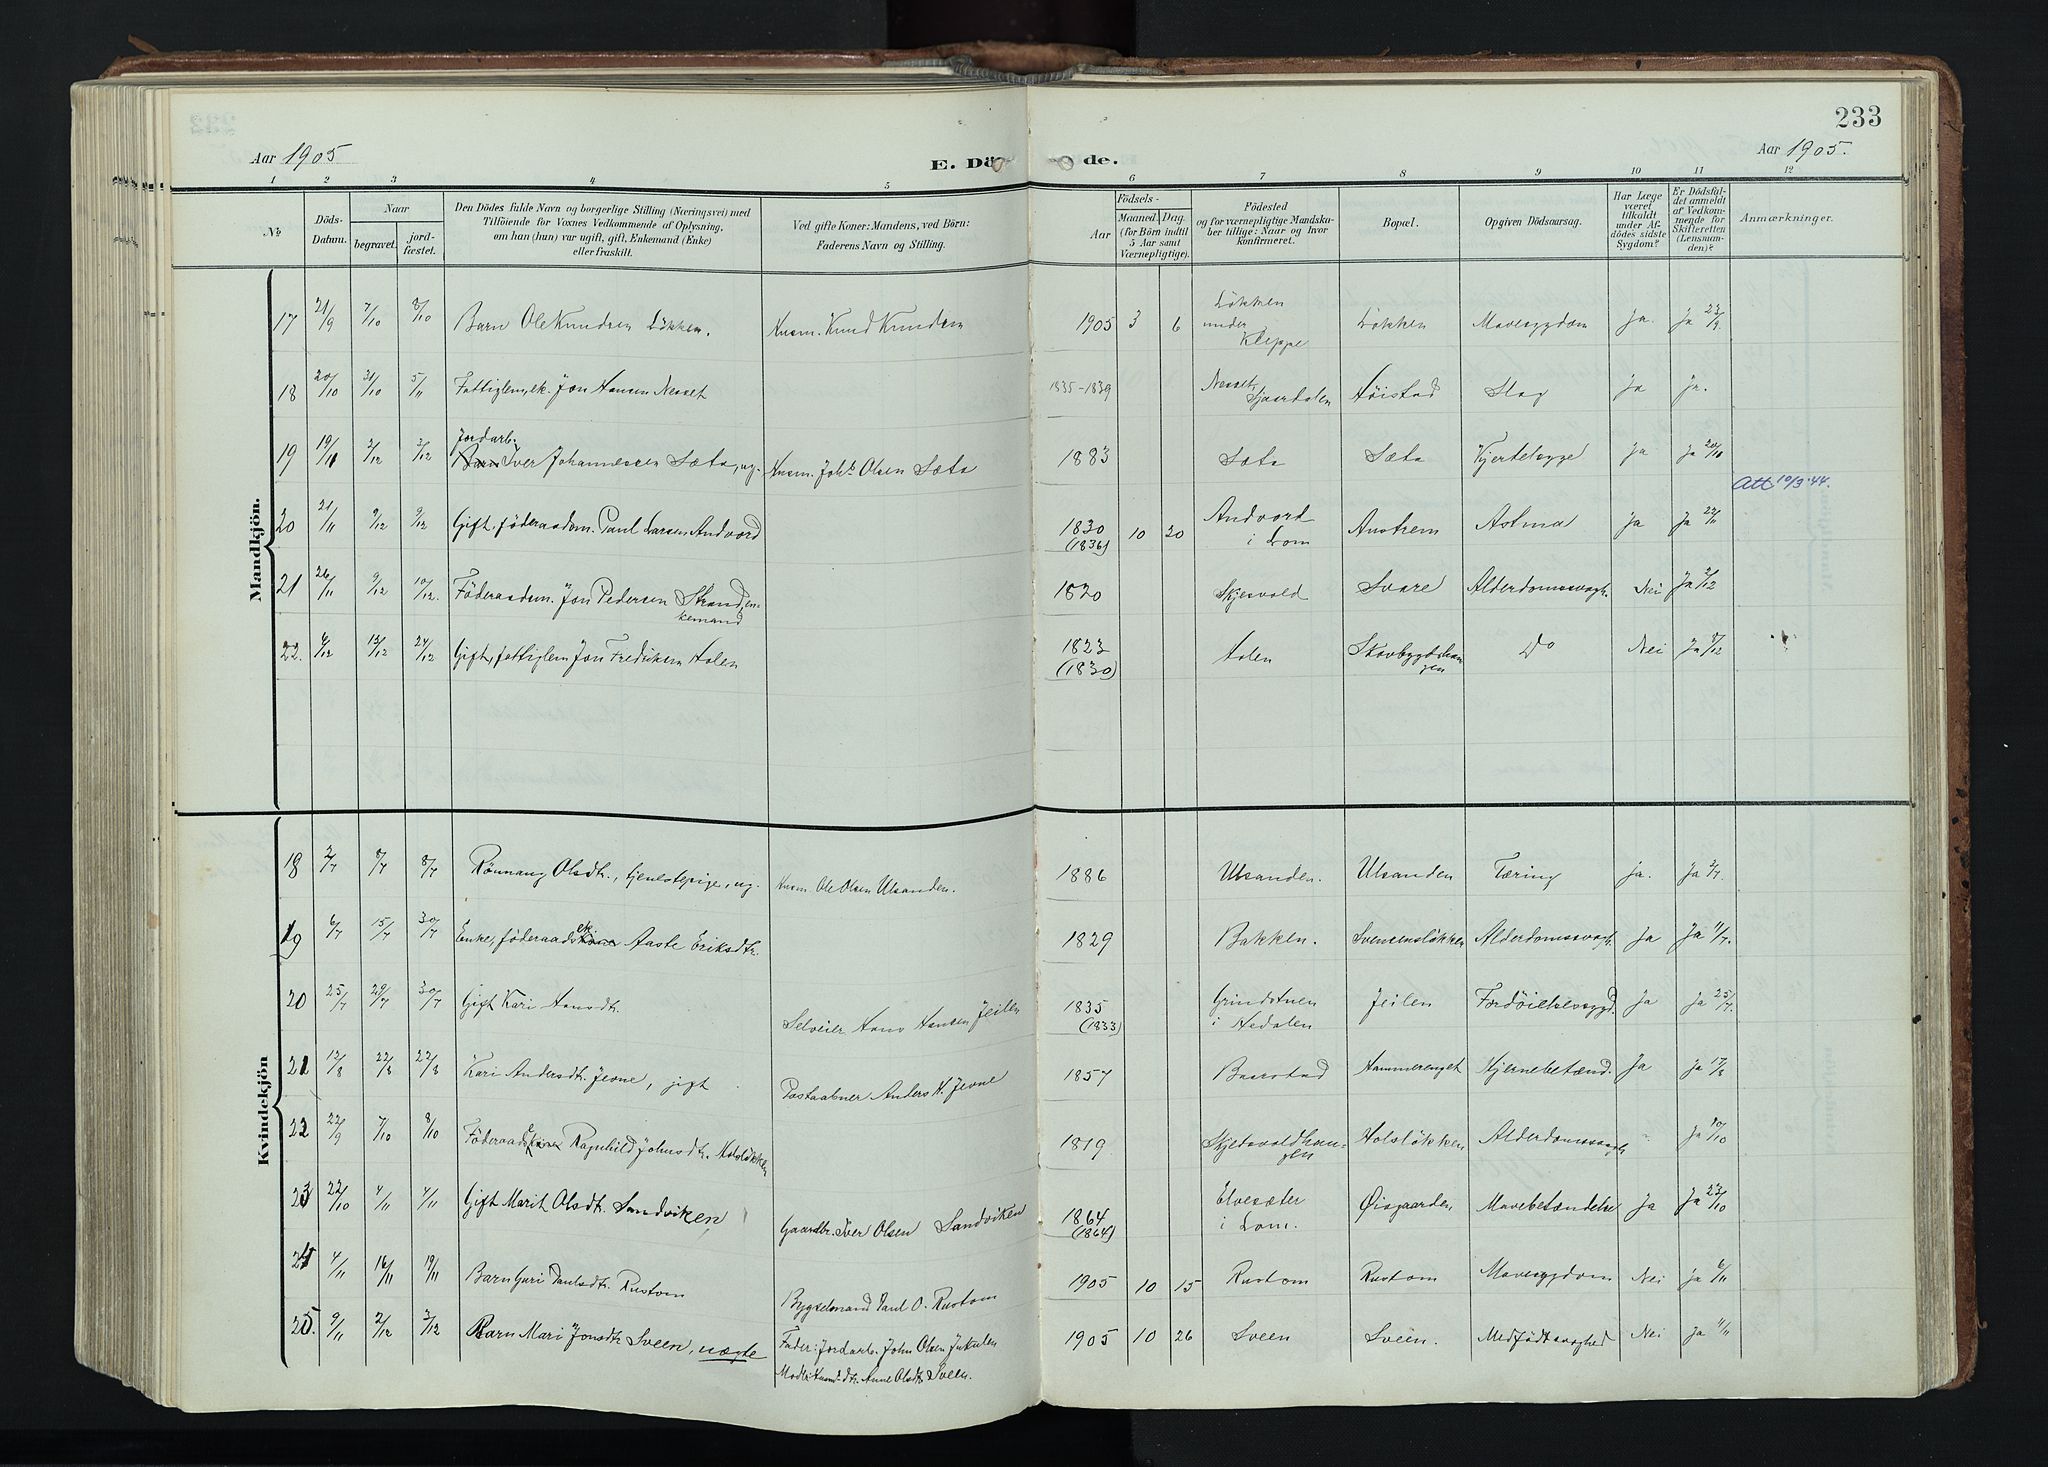 233
Aar 1905
E. Dö
de.
Aar 1905.
1 2 3 4 5 6 7 8 9 10 11 12
No
Döds-
Datum.
Naar
begravet.
jord-
fæstet.
Den Dödes fulde Navn og borgerlige Stilling (Næringsvei) med
Tilföiende for Voxnes Vedkommende af Oplysning,
om han (hun) var ugift, gift, Enkemand (Enke)
eller fraskilt.
Ved gifte Koner: Mandens, ved Börn:
Faderens Navn og Stilling.
Födsels-
Aar
Maaned. Dag.
(for Börn indtil
5 Aar samt
Værnepligtige).
Födested
og for værnepligtige Mandska-
ber tillige: Naar og hvor
konfirmeret.
Bopæl.
Opgiven Dödsaarsag.
Har Læge
været
tilkaldt
under Af-
dödes sidste
Sygdom?
Er Dödsfal-
det anmeldt
af Vedkom-
mende for
Skifteretten
(Lensman-
den)?
Anmærkninger.
Mandkjön.
17 21/9 7/10 8/10 Barn Ole Knudsen Løkken. Husm. Knud Knudsen 1905 3 6 Løkken
under
Kleppe
Løkken Mavesygdom Ja. Ja 23/9.
18 20/10 31/10 5/11 Fattiglem, ek. Jon Hansen Nesset 1835-1839 Nesset, Høistad Slag Ja Ja.
Jordarb.
19 19/11 2/12 3/12 Barn Iver Johannessen Sæta, ug. Husm. Johs. Olsen Sæta 1883 Sæta Sæta Hjertelygge Ja Ja 20/10
Att. 10/3-44.
20 21/11 9/12 9/12 Gift, föderaadsm. Paul Larsen Andvord 1830
(1836) 10 20 Andvord
i Lom Austrem Astma Ja Ja 22/11
21 26/11 9/12 10/12. Föderaadsm. Jon Pedersen Strand, en-
kemand 1820 Skjesvold Svare Alderdomssvagh. Nei Ja 2/12
22. 6/12 13/12 24/12 Gift, fattiglem Jon Fredriksen Holen 1823
(1830) Holen Skovbygdshau
gen Do Nei Ja 8/12
Kvindekjön
18 2/7 8/7 8/7 Rönnaug Olsdtr., tjenestepige, ug. Husm. Ole Olsen Ulsanden. 1886 Ulsanden. Ulsanden Tæring Ja. Ja 3/7.
19 6/7 15/7 30/7 Enke, föderaadsek. Aaste Eriksdtr. 1829 Bakken. Svensensløkken Alderdomssvagh. Ja Ja 11/7.
20 25/7 29/7 30/7 Gift Kari Hansdtr. Selveier Hans Hansen Jeilen 1835
(1833) Grindstuen
i Hedalen Jeilen Fordøielsessygd. Ja Ja 25/7.
21 13/8 22/8 22/8 Kari Andersdtr. Jevne, gift Postaabner Anders H. Jevne 1857 Baarstad Hammerenget Hjernebetænd. Ja Ja 17/8
22 22/9 7/10 8/10 Föderaads Ragnhild Johnsdtr. Holsløkken 1819 Skjedsvoldhau-
gen Holsløkken Alderdomssvagh Ja 10/10
23 22/10 4/11 4/11 Gift Marit Olsdtr. Sandviken Gaardbr. Iver Olsen Sandviken 1864
(1864) Elvesæter
i Lom. Øigaarden, Mavebetændelse Ja Ja 23/10
24 4/11 16/11 19/11 Barn Guri Paulsdtr. Rustom Bygselmand Paul O. Rustom 1905 10 15 Rustom Rustom Mavesygdom Nei Ja 6/11
25. 9/11 2/12 3/12 Barn Mari Jonsdtr Sveen, uægte Fader: Jordarb. John Olsen Jukulen
Anne Olsdtr. Sveen. 1905 10 26 Sveen Sveen. Medfødt svaghed Nei Ja 11/11